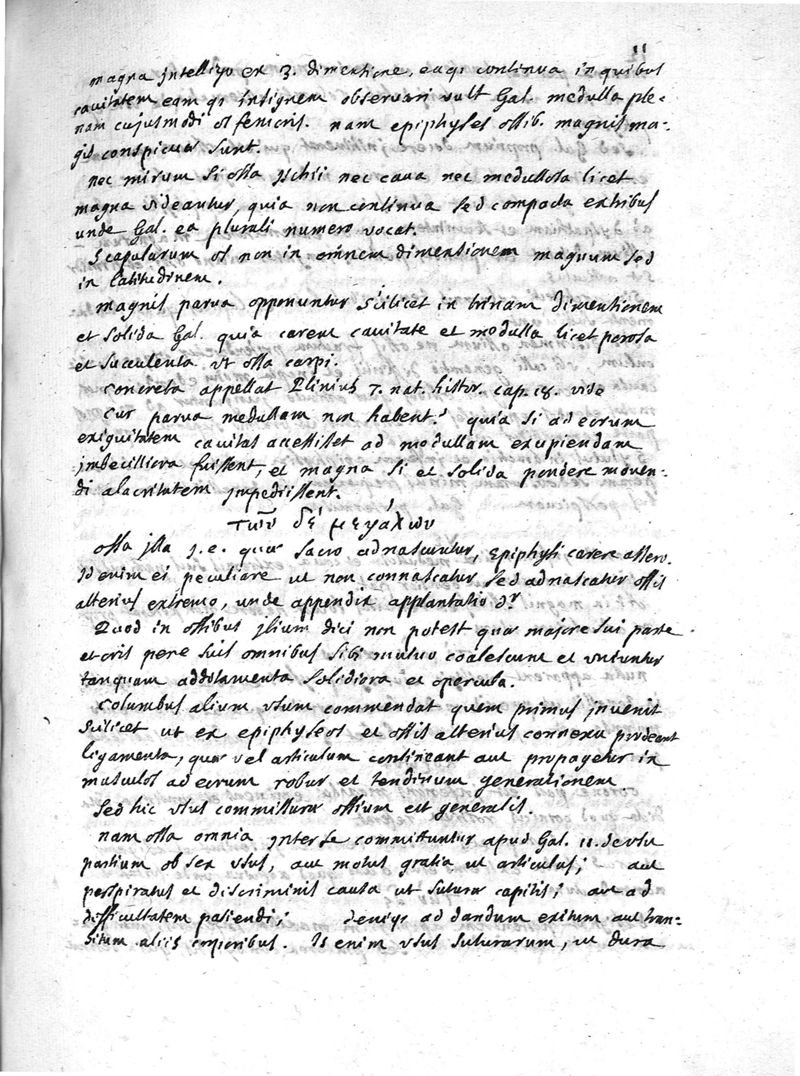 11
magna intelligo ex 3. dimentione, eaq; continua in quibus
cavitatem eamq; insignem observari vult Gal. medulla ple-
nam cujusmodi os femoris. nam epiphyses ossib. magnis ma-
gis conspicuæ sunt.
nec mirum si ossa Ischii nec cava nec medullosa licet
magna videantur, quia non continua sed compacta ex tribus
unde Gal. ea plurali numero vocat.
Scapularum os non in omnem dimentionem magnum sed
in latitudinem.
magnis parva opponuntur scilicet in trinam dimentionem
et solida Gal. quia carent cavitate et medulla licet porosa
et succulenta ut ossa carpi.
Concreta appellat Plinius 7. nat. histor. cap. 18. vide
Cur parva medullam non habent? quia si ad eorum
exiguitatem cavitas accessisset ad medullam excipiendam
imbecilliora fuissent, et magna si et solida pondere moven-
di alacritatem impediissent.
τῶν δὲ μεγάλων
ossa illa i.e. quæ sacro adnascuntur, epiphysi carere assero.
Id enim ei peculiare ut non connascatur sed adnascatur ossis
alterius extremo, unde appendix applantatio dr
Quod in ossibus Ilium dici non potest quæ majore sui parte
et oris pene suis omnibus sibi mutuo coalescunt et uniuntur
tanquam additamenta solidiora et opercula.
Columbus alium usum commendat quem primus invenit
scilicet ut ex epiphyseos et ossis alterius connexu prodeant
ligamenta, quæ vel articulum contineant aut propagetur in
musculos ad eorum robur et tendinum generationem
Sed hic usus commissuræ ossium est generalis.
nam ossa omnia inter se committuntur apud Gal. 11. de usu
partium ob sex usus, aut motus gratia ut articulus; aut
perspiratus et discriminis causa ut suturæ capitis; aut ad
difficultatem patiendi; deniq; ad dandum exitum aut tran-
situm aliis corporibus. Is enim usus suturarum, ut dura